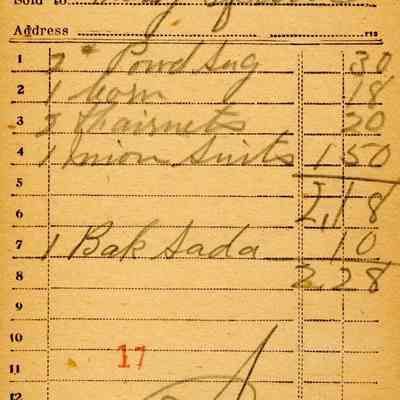 Sold to
Address
1 2# Powd Sug 30
2 1 Corn 18
3 2 Hairnets 20
4 1 Union Suits 1 50
5
6 2,18
7 1 Bak Sada 10
8 2,28
9
10
11 17
12